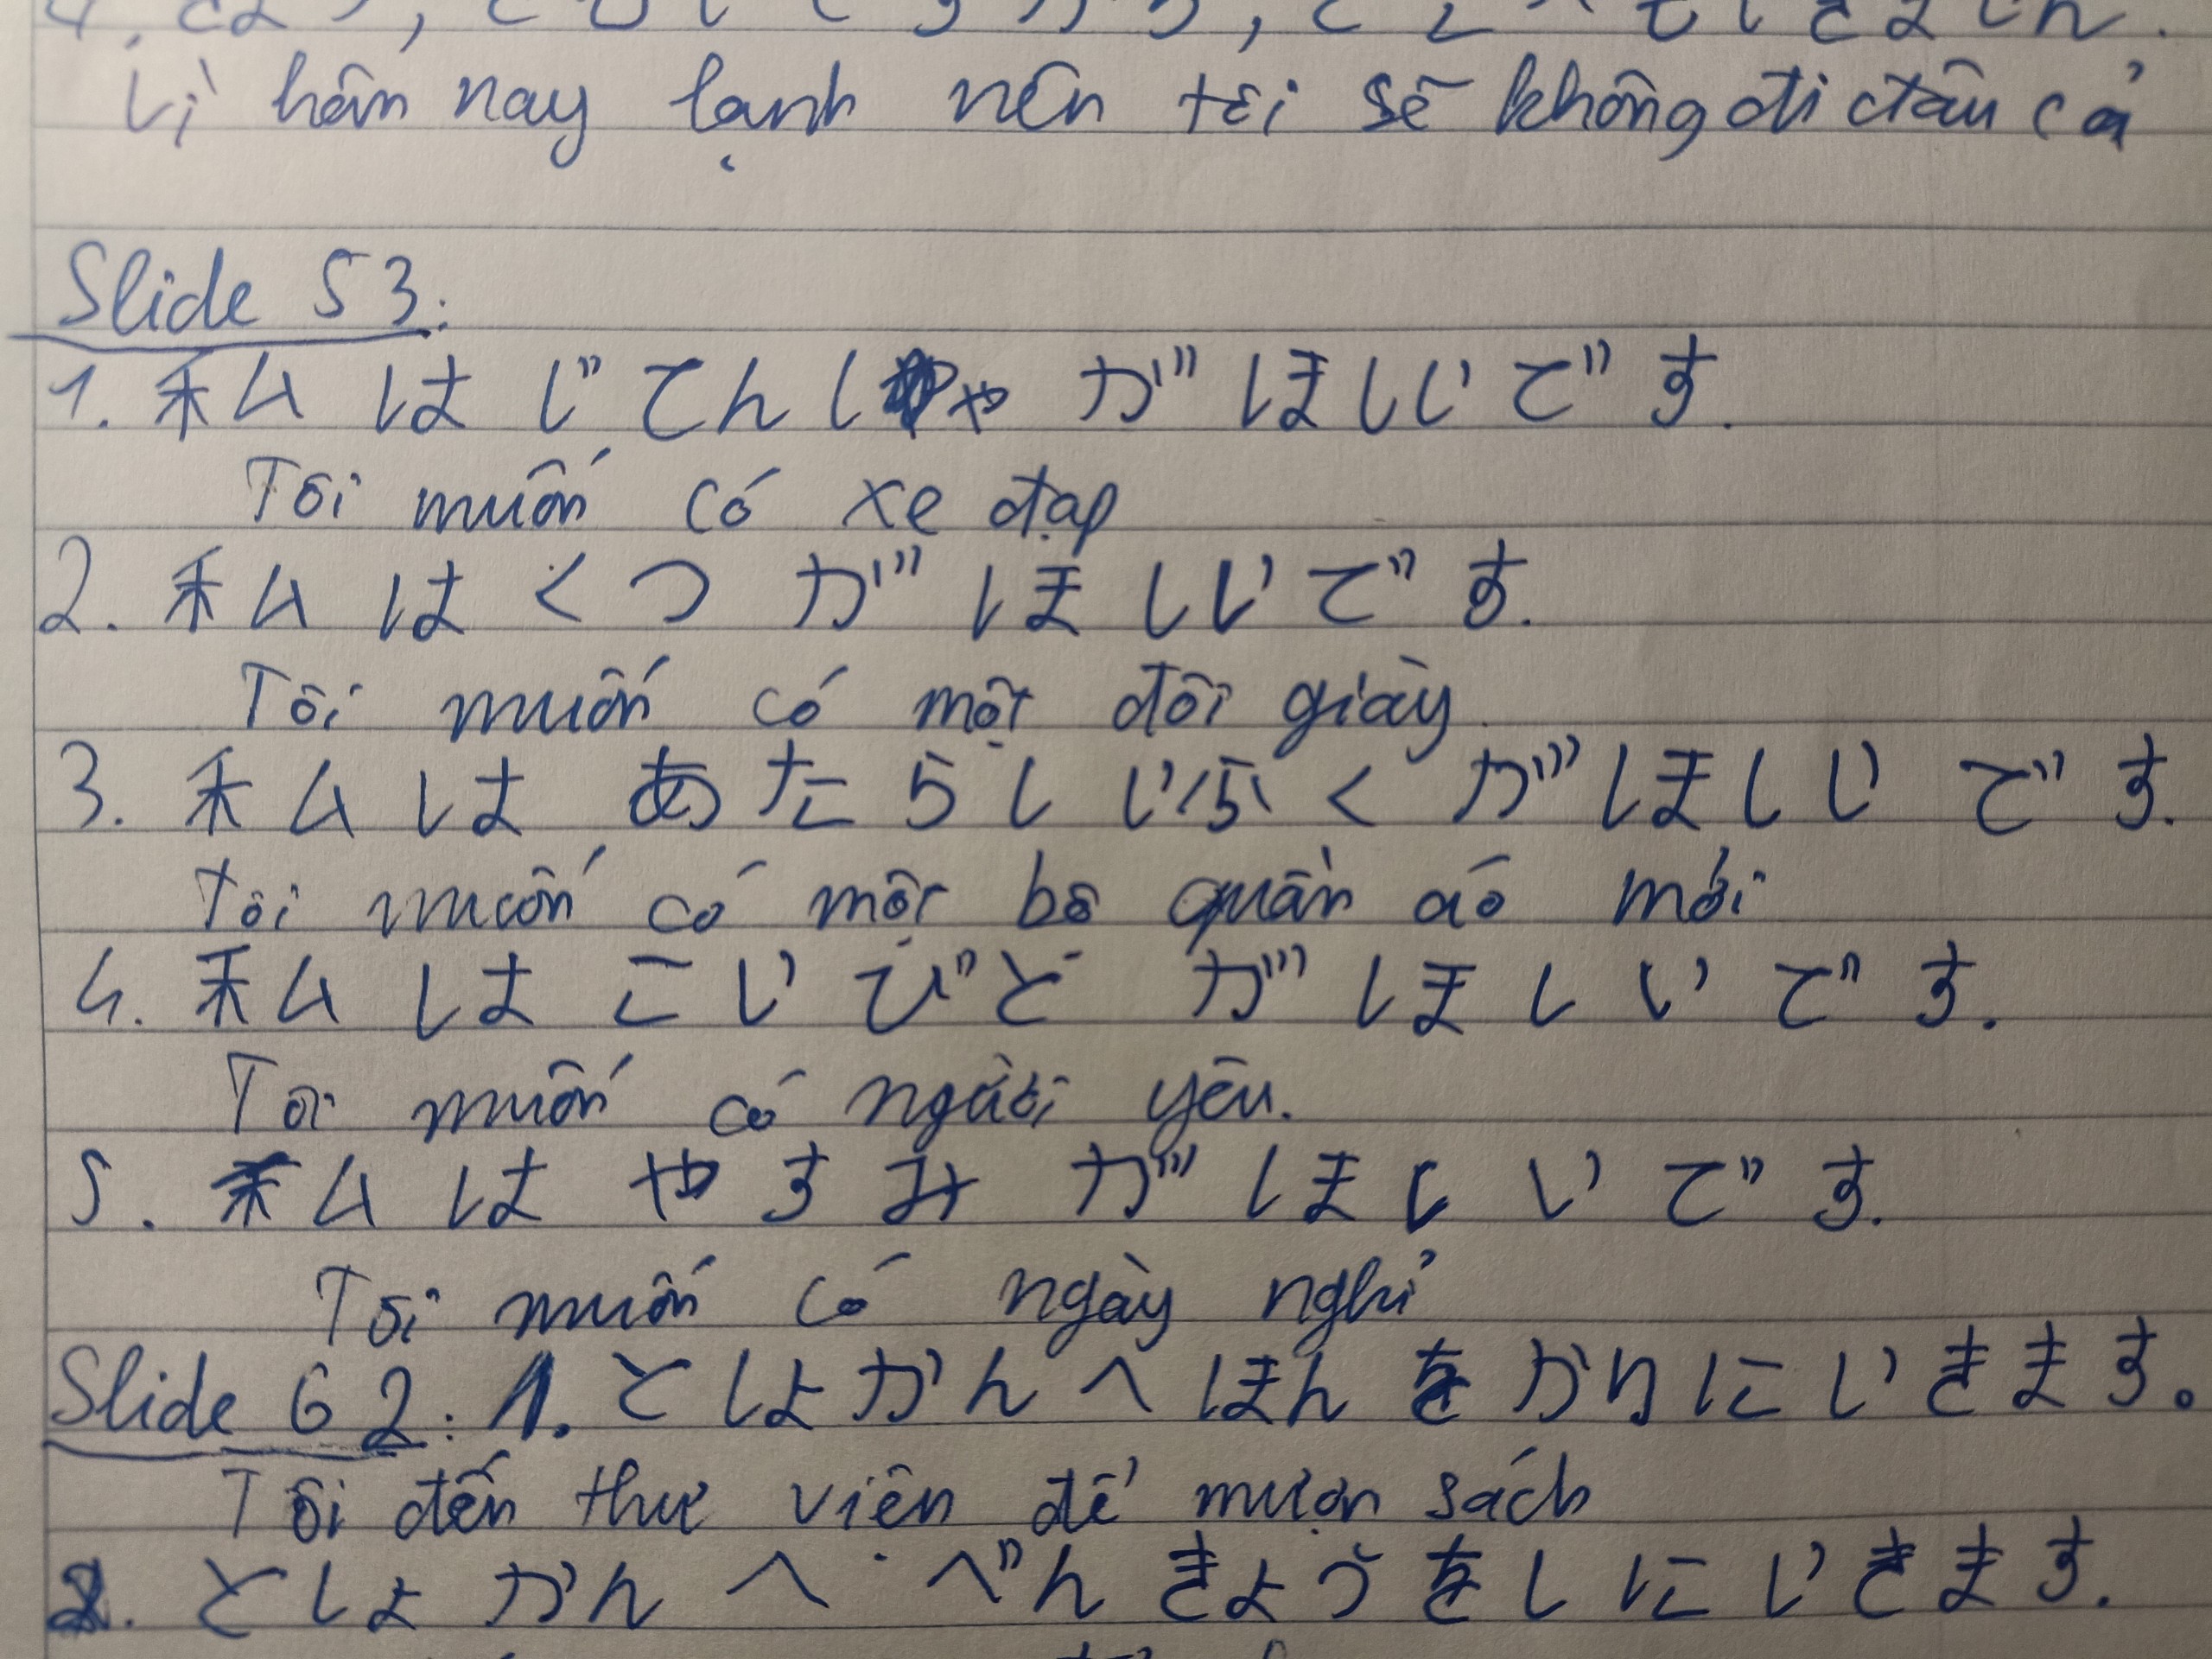 Vì hôm nay lạnh nên tôi sẽ không đi đâu cả
Slide 53:
1. 私はじてんしゃがほしいです.
Tôi muốn có xe đạp
2. 私はくつがほしいです.
Tôi muốn có một đôi giày.
3. 私はあたらしいふくがほしいです.
Tôi muốn có một bộ quần áo mới
4. 私はこいびとがほしいです.
Tôi muốn có người yêu.
5. 私はやすみがほしいです.
Tôi muốn có ngày nghỉ
Slide 62: 1. としょかんへほんをかりにいきます。
Tôi đến thư viện để mượn sách
2. としょかんへべんきょうをしにいきます.